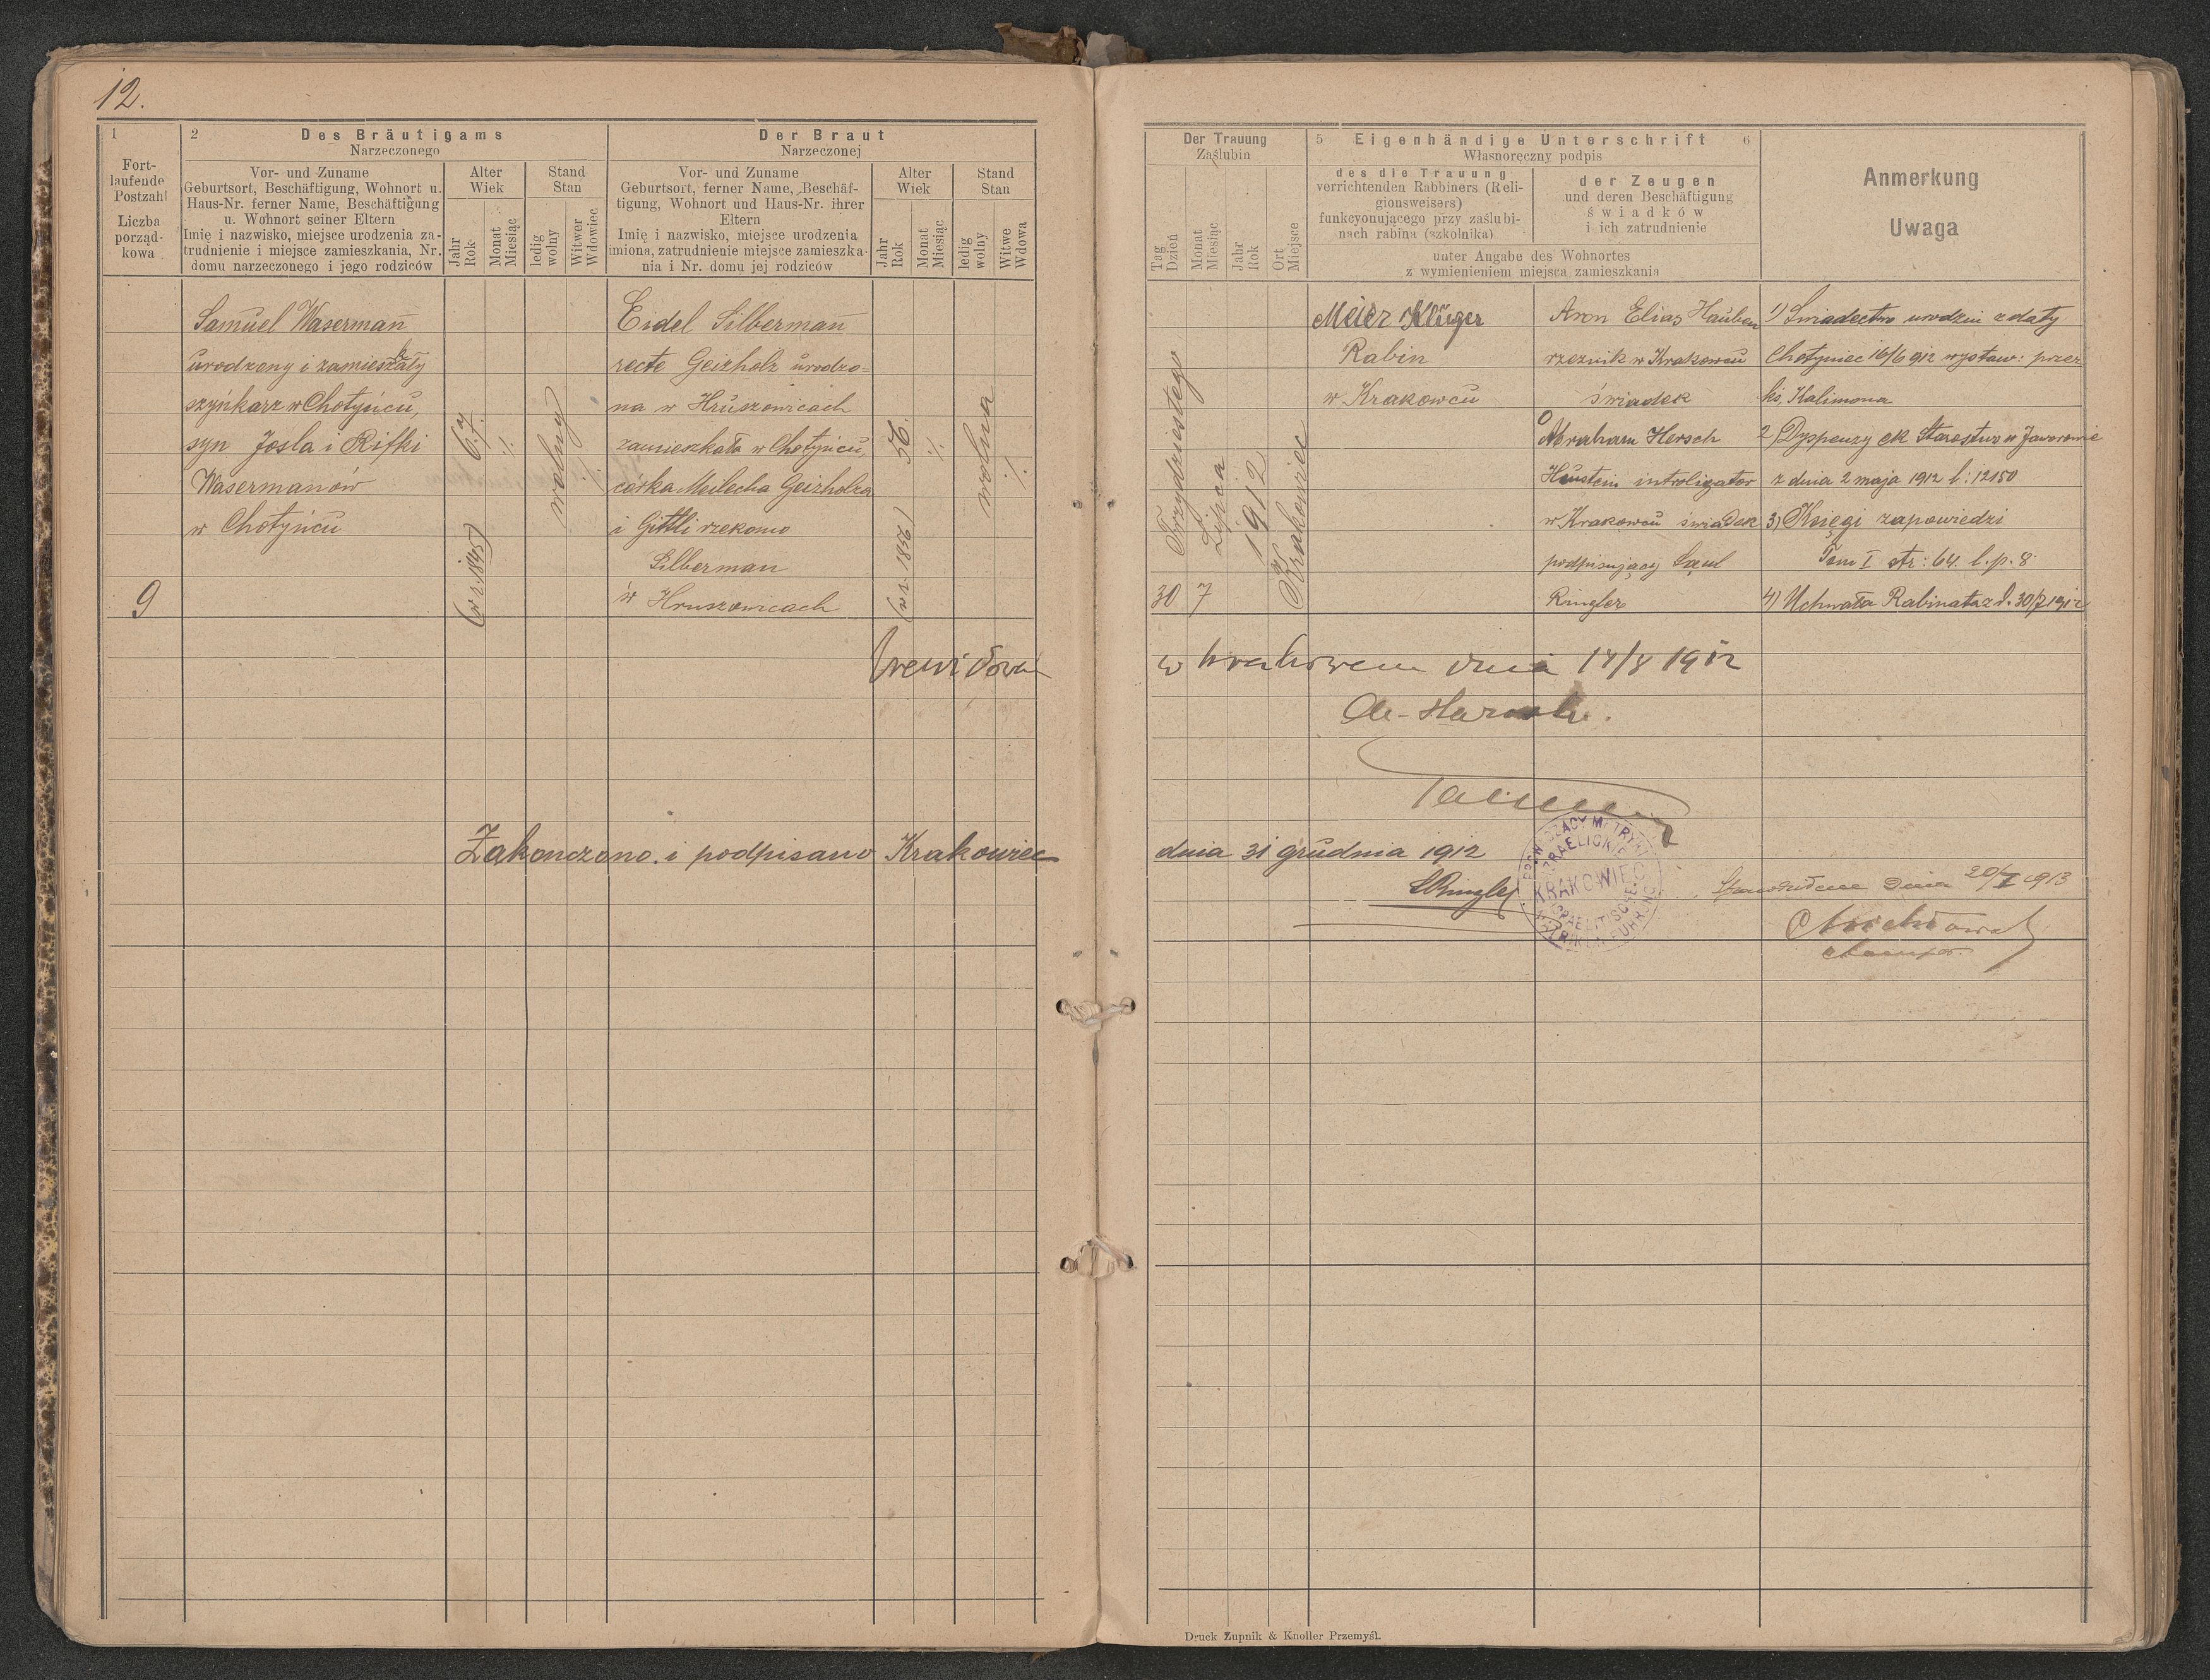 12.
1
Fort-
laufende
Postzahl
Liczba
porząd-
kowa
2
Des Bräutigams
Narzeczonego
Vor- und Zuname
Geburtsort, Beschäftigung, Wohnort u.
Haus-Nr. ferner Name, Beschäftigung
u. Wohnort seiner Eltern
Imię i nazwisko, miejsce urodzenia za-
trudnienie i miejsce zamieszkania, Nr.
domu narzeczonego i jego rodziców
Alter
Wiek
Jahr
Rok
Monat
Miesiąc
Stand
Stan
ledig
wolny
Witwer
Wdowiec
Der Braut
Narzeczonej
Vor- und Zuname
Geburtsort, ferner Name, Beschäf-
tigung, Wohnort und Haus-Nr. ihrer
Eltern
Imię i nazwisko, miejsce urodzenia
imiona, zatrudnienie miejsce zamieszka-
nia i Nr. domu jej rodziców
Alter
Wiek
Jahr
Rok
Monat
Miesiąc
Stand
Stan
ledig
wolny
Witwe
Wdowa
Der Trauung
Zaślubin
Tag
Dzień
Monat
Miesiąc
Jahr
Rok
Ort
Miejsce
5 Eigenhändige Unterschrift 6
Własnoręczny podpis
des die Trauung
verrichtenden Rabbiners (Reli-
gionsweisers)
funkcyonującego przy zaślubi-
nach rabina (szkolnika)
der Zeugen
und deren Beschäftigung
świadków
i ich zatrudnienie
unter Angabe des Wohnortes
z wymienieniem miejsca zamieszkania
Anmerkung
Uwaga
9
Samuel Wasermann
urodzony i zamieszkały
szynkarz w Chotyńcu,
syn Josla i Rifki
Wasermanów
w Chotyńcu
67
(w r. 1845)
./.
wolny
./.
Eidel Silbermann
recte Geizholz urodzo-
na w Hruszowicach
zamieszkała w Chotyńcu,
córka Meilecha Geizholza
i Gittli rzekomo
Silberman
w Hruszowicach
56.
(w r. 1856)
./.
wolna
./.
Trzydziestego
30
Lipca
7
1912
Krakowiec
Meier Klüger
Rabin
w Krakowcu
Aron Elias Hauben
rzeznik w Krakowcu
świadek
O
Abraham Hersch
Hustein introligator
w Krakowcu świadek
podpisujący Saul
Ringler
1) Świadectwo urodzin z daty
Chotyniec 16/6 912 wystaw: przez
ks. Kalimona
2) Dyspenzy ck Starostwo w Jaworowie
z dnia 2 maja 1912 l: 12150
3) Księgi zapowiedzi
Tom I str: 64. l. p. 8
4) Uchwała Rabinata z d. 30/7 1912
w Krakowcu dnia 14/8 1912
Zakonczono i podpisano Krakowiec dnia 31 grudnia 1912
SRingler
KRAKOWIEC
dnia 20/I 1913
Druck Żupnik & Knoller Przemyśl.